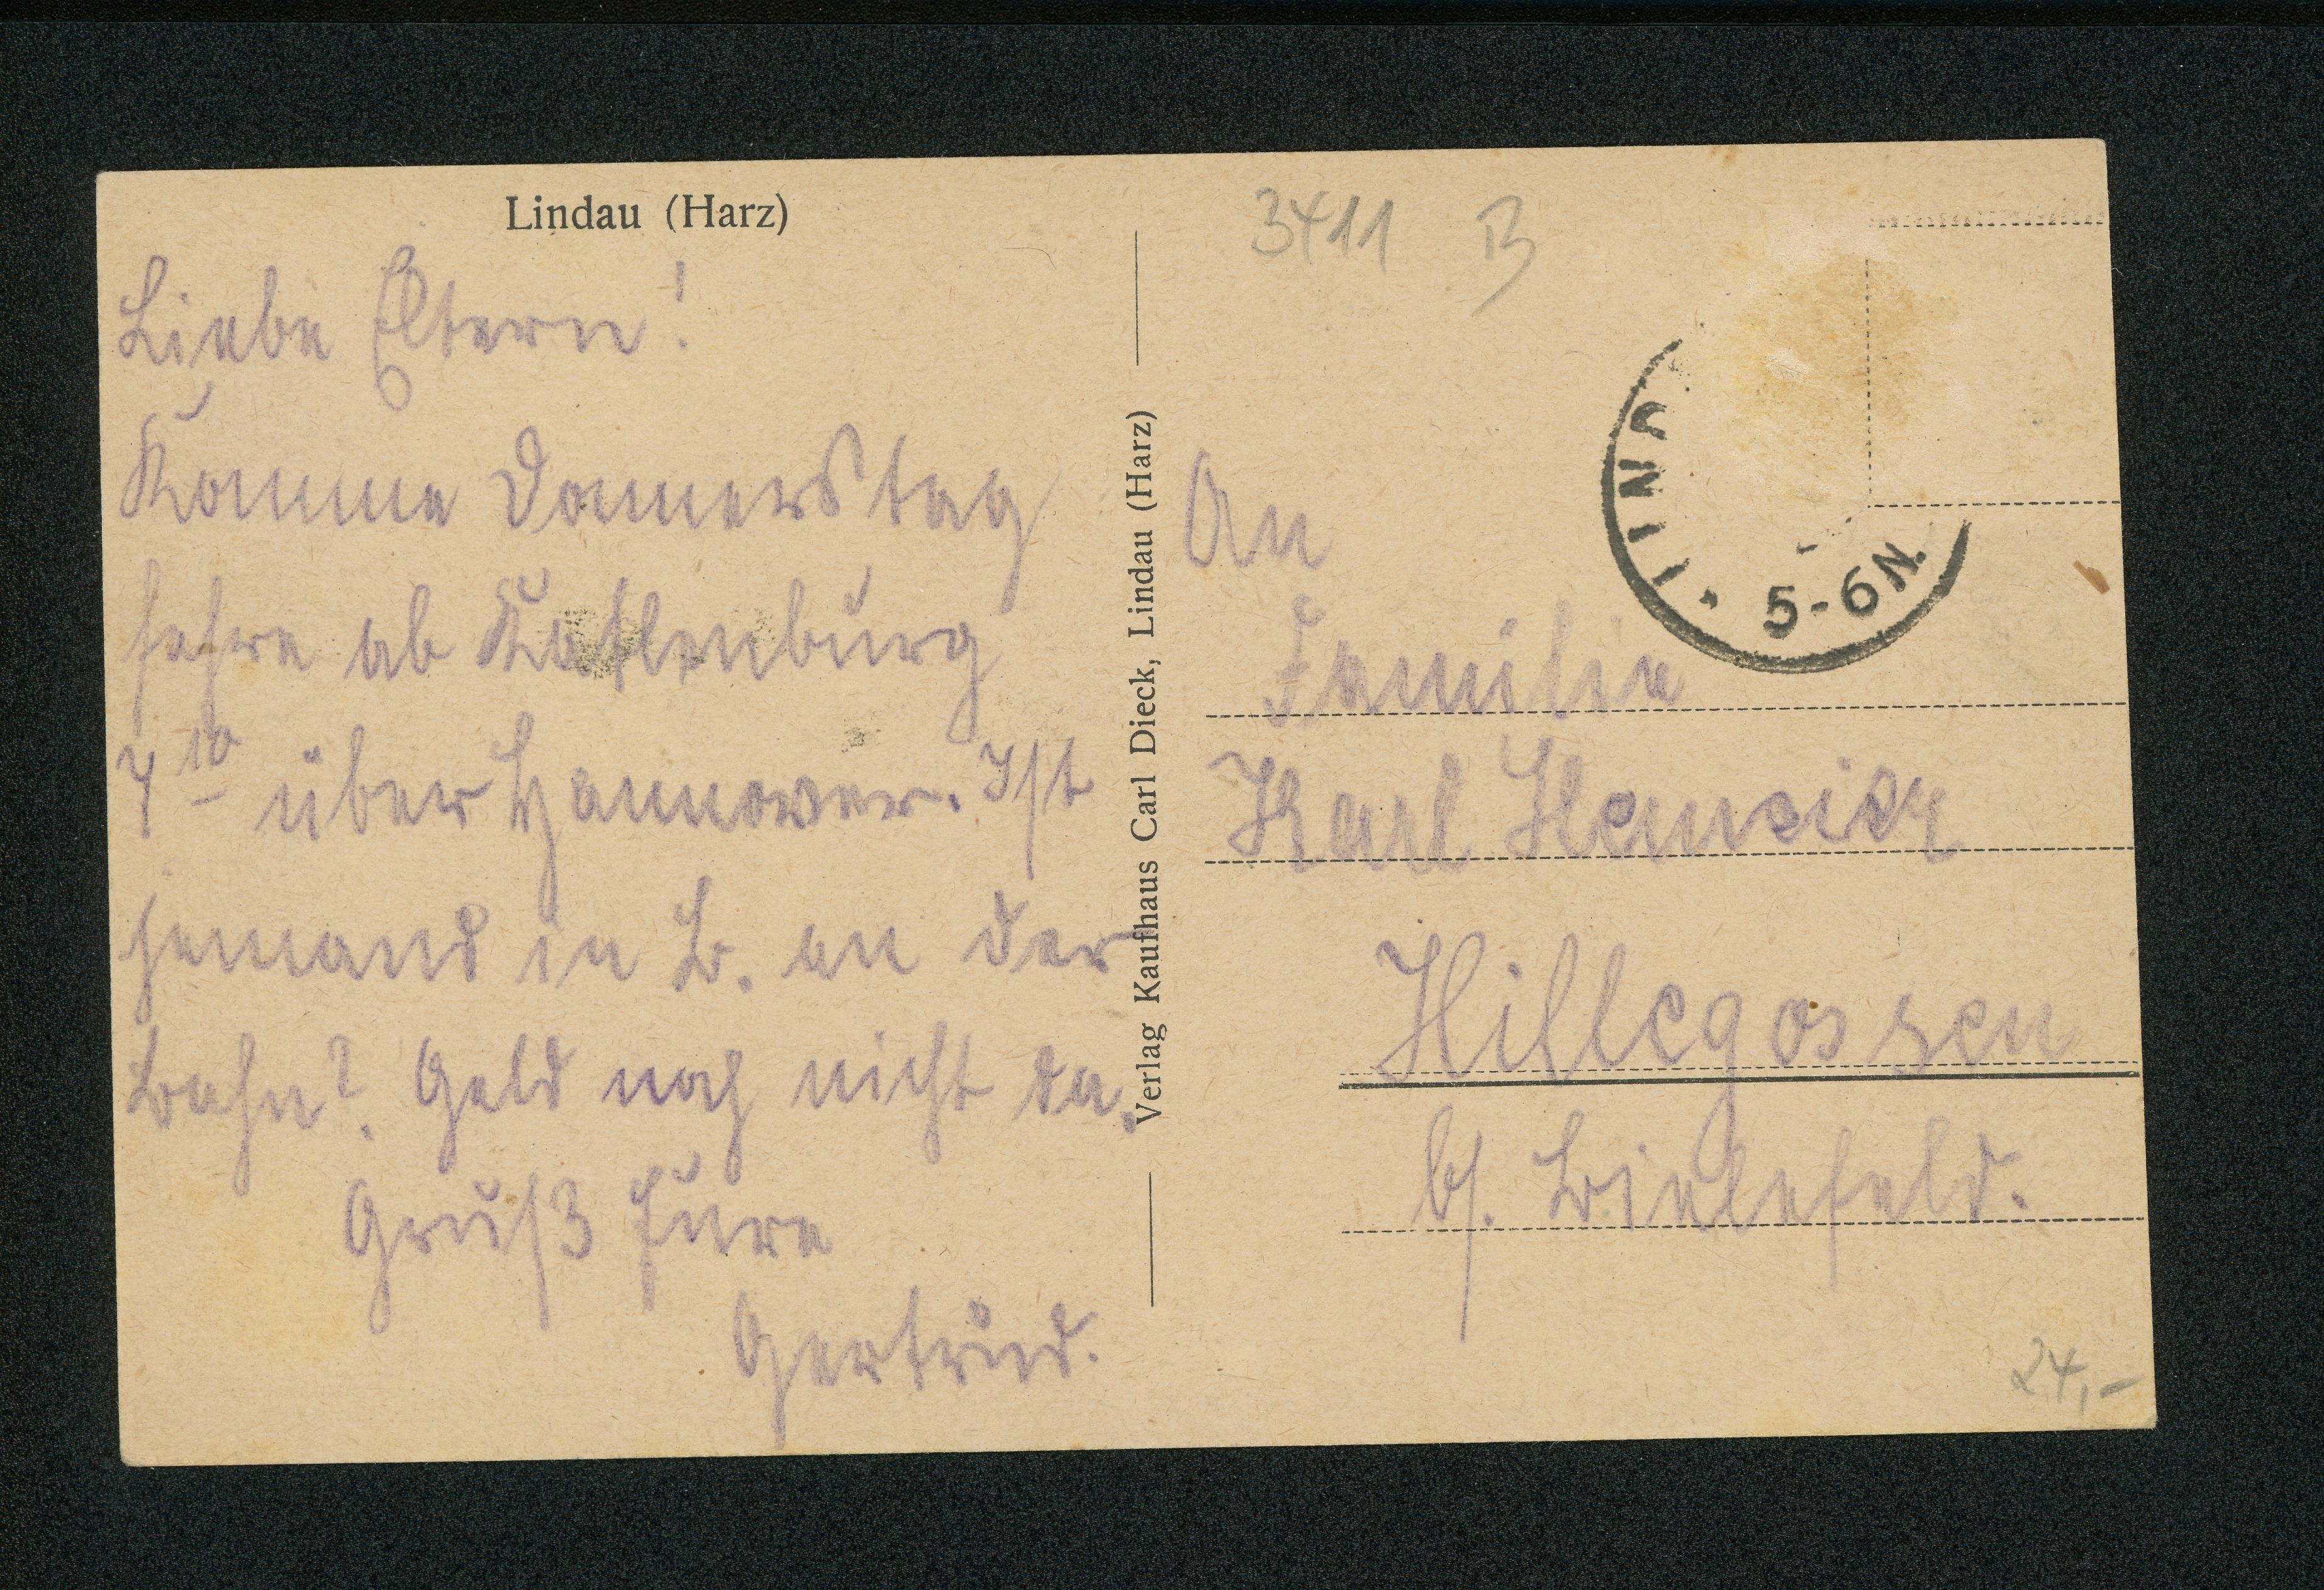 Lindau (Harz)
Liebe Eltern!
Komme Donnerstag
fahre ab Katlenburg
7¹⁰ über Hannover. Ist
jemand in B. an der
Bahn? Geld noch nicht da.
Gruß Eure
Gertrud.
Verlag Kaufhaus Carl Dieck, Lindau (Harz)
3411 B
LIND
5-6N.
An
Familie
Karl
Hillegossen
b/. Bielefeld.
24,-